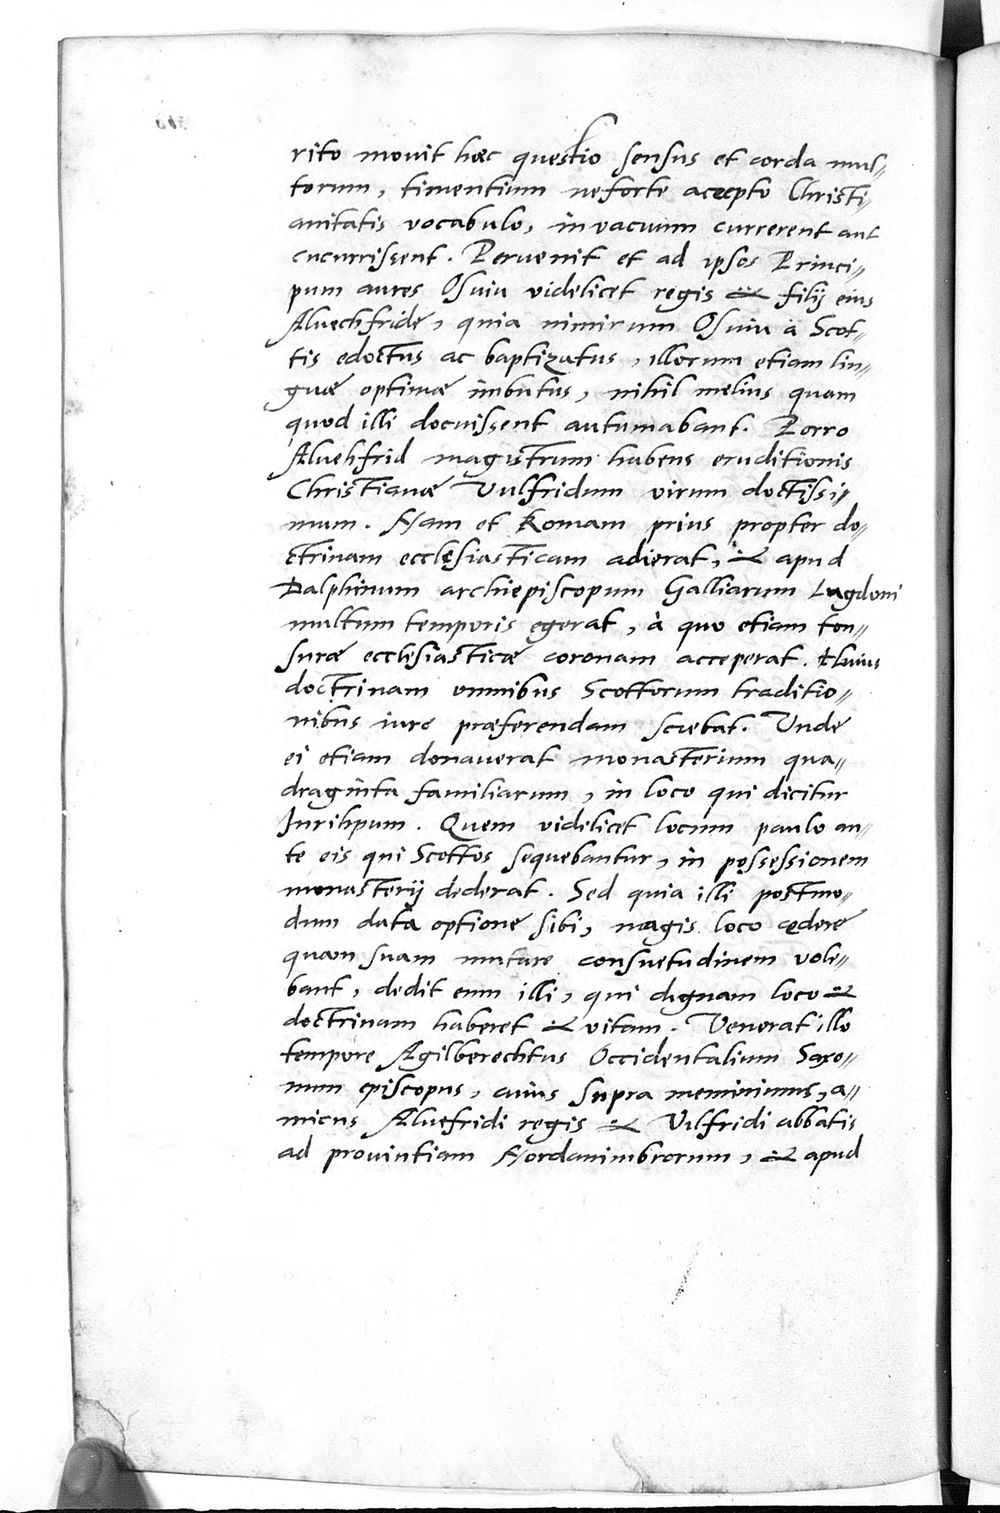 rito movit hæc questio sensus et corda mul-
torum, timentium ne forte accepto Christi-
anitatis vocabulo, in vacuum currerent aut
cucurrissent. Pervenit et ad ipsos Princi-
pum aures Osuiu videlicet regis & filij eius
Aluechfride, quia nimirum Osuiu à Scot-
tis edoctus ac baptizatus, illorum etiam lin-
guæ optimæ imbutus, nihil melius quam
quod illi docuissent autumabant. Porro
Aluehfrid magistrum habens eruditionis
Christianæ Vulfridum virum doctissi-
mum. Nam et Romam prius propter do-
ctrinam ecclesiasticam adierat, & apud
Dalphinum archiepiscopum Galliarum Lugdoni
multum temporis egerat, à quo etiam ton-
suræ ecclesiasticæ coronam acceperat. Huius
doctrinam omnibus Scottorum traditio-
nibus iure præferendam sciebat. Unde
ei etiam donaverat monasterium qua-
draginta familiarum, in loco qui dicitur
Inrihpum. Quem videlicet locum paulo an-
te eis qui Scottos sequebantur, in possessionem
monasterij dederat. Sed quia illi postmo-
dum data optione sibi, magis loco cędere
quam suam mutare consuetudinem vole-
bant, dedit eum illi, qui dignam loco &
doctrinam haberet & vitam. Venerat illo
tempore Agilberechtus Occidentalium Saxo-
num episcopus, cuius supra meminimus, a-
micus Aluefridi regis & Vilfridi abbatis
ad provintiam Nordanimbrorum, & apud